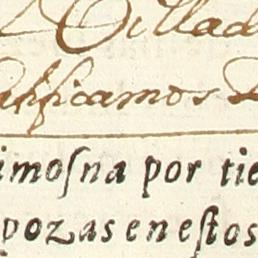 Villad
ifficamos
imoſna por tie
pozas en eſtos